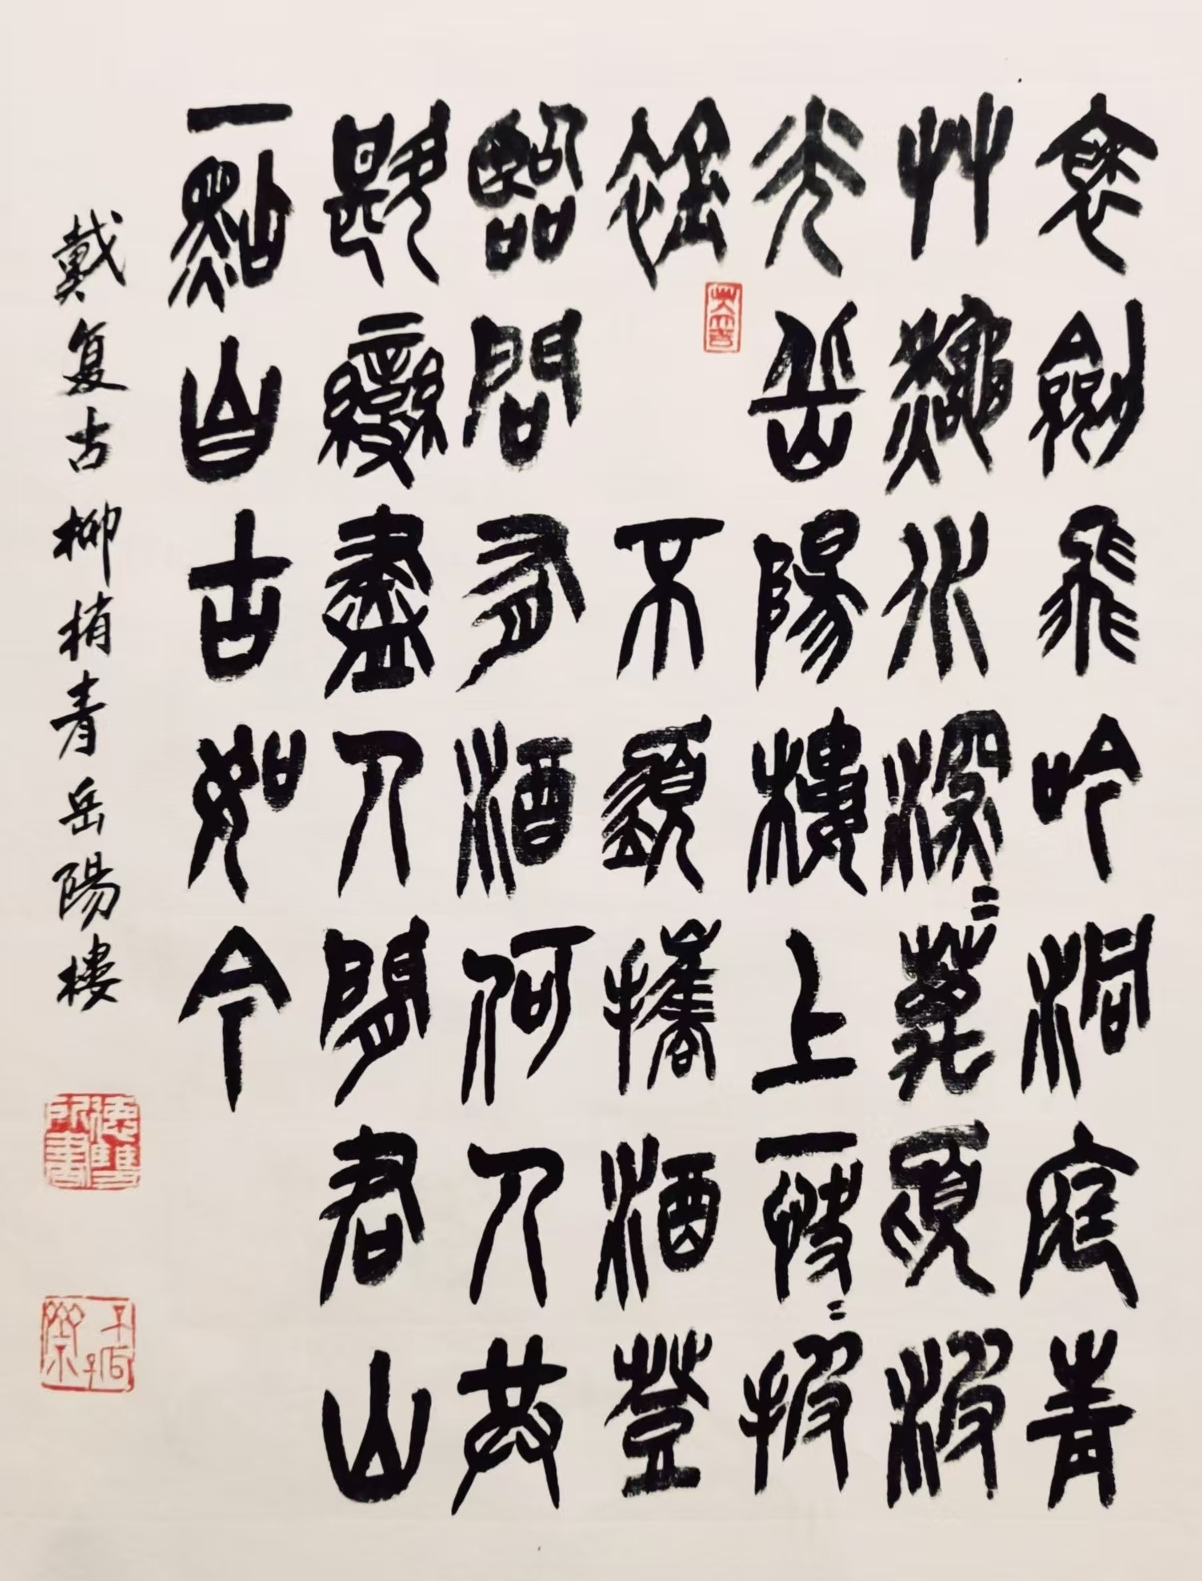 褎劍飛吟洞庭青
艸龝水深〻萬頃波
光岳陽樓上一快披
襟不須攜酒登
臨問有酒何人共
斟變盡人間君山
一點自古如今
戴复古柳梢青岳陽樓